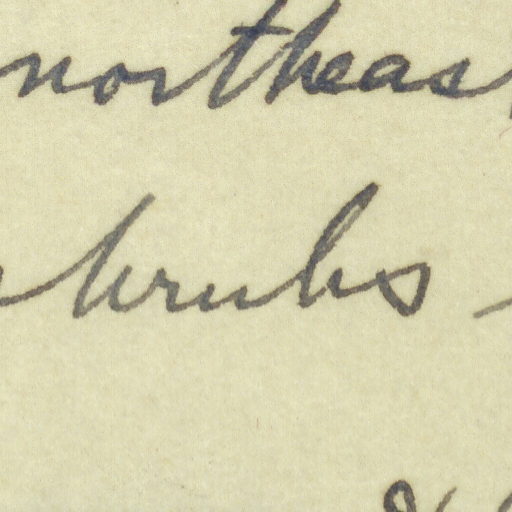 northeas
shrubs -